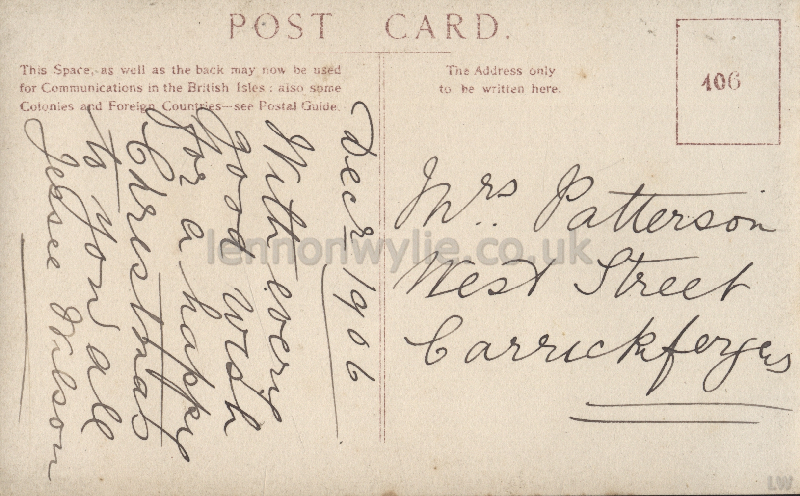 POST CARD.
This Space, as well as the back may now be used
for Communications in the British Isles; also some
Colonies and Foreign Countries—see Postal Guide.
The Address only
to be written here.
406
Decr 1906
With every
good wish
for a happy
Christmas
to you all
Jessee Wilson
Mrs. Patterson
West Street
Carrickfergus
lennonwylie.co.uk
LW